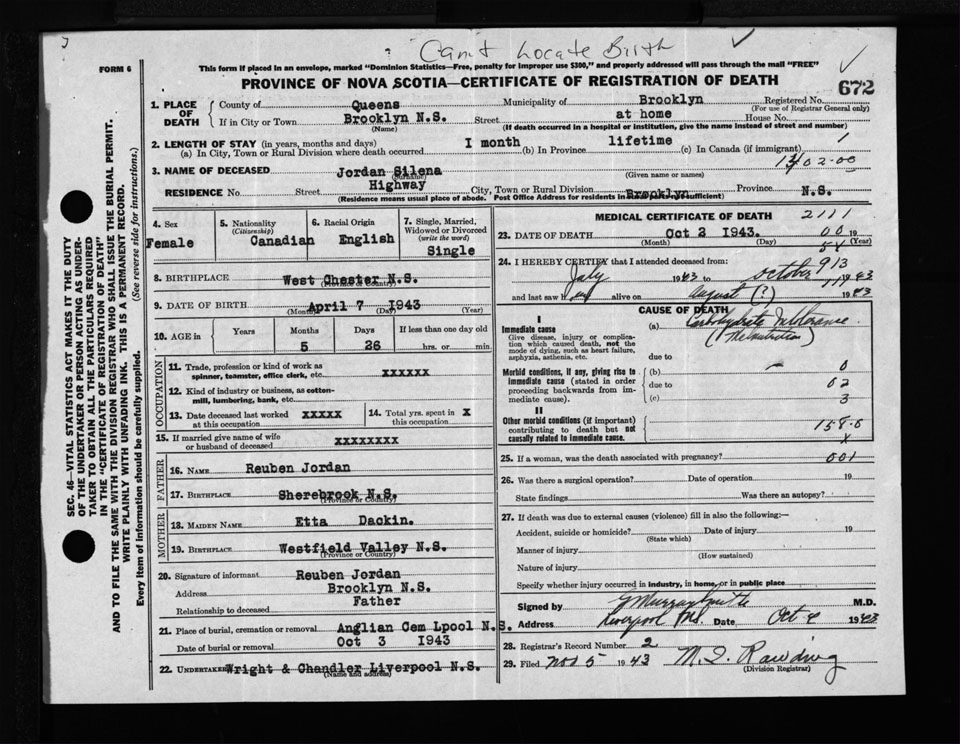 Can't Locate Birth
FORM 6
This form if placed in an envelope, marked "Dominion Statistics—Free, penalty for improper use $300," and properly addressed will pass through the mail "FREE"
PROVINCE OF NOVA SCOTIA—CERTIFICATE OF REGISTRATION OF DEATH
672
1. PLACE OF DEATH
County of Queens Municipality of Brooklyn Registered No.
(For use of Registrar General only)
If in City or Town Brooklyn N.S. Street at home House No.
(Name) (If death occurred in a hospital or institution, give the name instead of street and number)
2. LENGTH OF STAY (in years, months and days)
(a) In City, Town or Rural Division where death occurred I month (b) In Province lifetime (c) In Canada (if immigrant)
3. NAME OF DECEASED Jordan Silena
(Surname) (Given name or names)
RESIDENCE No. Street Highway City, Town or Rural Division Brooklyn Province N.S.
(Residence means usual place of abode. Post Office Address for residents in rural parts not sufficient)
4. Sex Female
5. Nationality (Citizenship) Canadian
6. Racial Origin English
7. Single, Married, Widowed or Divorced (write the word) Single
8. BIRTHPLACE West Chester N.S.
(Province or Country)
9. DATE OF BIRTH April 7 1943
(Month) (Day) (Year)
10. AGE in Years Months 5 Days 26 If less than one day old hrs. or min.
OCCUPATION
11. Trade, profession or kind of work as spinner, teamster, office clerk, etc. XXXXXX
12. Kind of industry or business, as cotton-mill, lumbering, bank, etc.
13. Date deceased last worked at this occupation XXXXX
14. Total yrs. spent in this occupation X
15. If married give name of wife or husband of deceased XXXXXXXX
FATHER
16. NAME Reuben Jordan
17. BIRTHPLACE Sherebrook N.S.
(Province or Country)
MOTHER
18. MAIDEN NAME Etta Dackin.
19. BIRTHPLACE Westfield Valley N.S.
(Province or Country)
20. Signature of informant Reuben Jordan
Address Brooklyn N.S.
Relationship to deceased Father
21. Place of burial, cremation or removal Anglian Cem Lpool N.S.
Date of burial or removal Oct 3 1943
22. UNDERTAKER Wright & Chandler Liverpool N.S.
(Name and address)
MEDICAL CERTIFICATE OF DEATH 2111
23. DATE OF DEATH Oct 2 1943. 19
(Month) (Day) (Year)
24. I HEREBY CERTIFY that I attended deceased from:
July 1943 to October 1943
and last saw h alive on August (?) 1943
CAUSE OF DEATH
I
Immediate cause
Give disease, injury or complication which caused death, not the mode of dying, such as heart failure, asphyxia, asthenia, etc.
(a) Carbohydrate Intolerance
(Malnutrition)
due to
Morbid conditions, if any, giving rise to immediate cause (stated in order proceeding backwards from immediate cause).
(b) 0
due to 02
(c) 3
II
Other morbid conditions (if important) contributing to death but not causally related to immediate cause.
158.0
X
25. If a woman, was the death associated with pregnancy? 001
26. Was there a surgical operation? Date of operation 19
State findings Was there an autopsy?
27. If death was due to external causes (violence) fill in also the following:—
Accident, suicide or homicide? Date of injury 19
(State which)
Manner of injury
(How sustained)
Nature of injury
Specify whether injury occurred in industry, in home, or in public place
Signed by J Murray Smith M.D.
Address Liverpool N.S. Date Oct 1943
28. Registrar's Record Number 2
29. Filed Nov 5 1943 M. I. Rawding
(Division Registrar)
SEC. 46—VITAL STATISTICS ACT MAKES IT THE DUTY
OF THE UNDERTAKER OR PERSON ACTING AS UNDER-
TAKER TO OBTAIN ALL THE PARTICULARS REQUIRED
IN THE "CERTIFICATE OF REGISTRATION OF DEATH"
AND TO FILE THE SAME WITH THE DIVISION REGISTRAR WHO SHALL ISSUE THE BURIAL PERMIT.
WRITE PLAINLY WITH UNFADING INK. THIS IS A PERMANENT RECORD.
Every item of information should be carefully supplied. (See reverse side for instructions.)